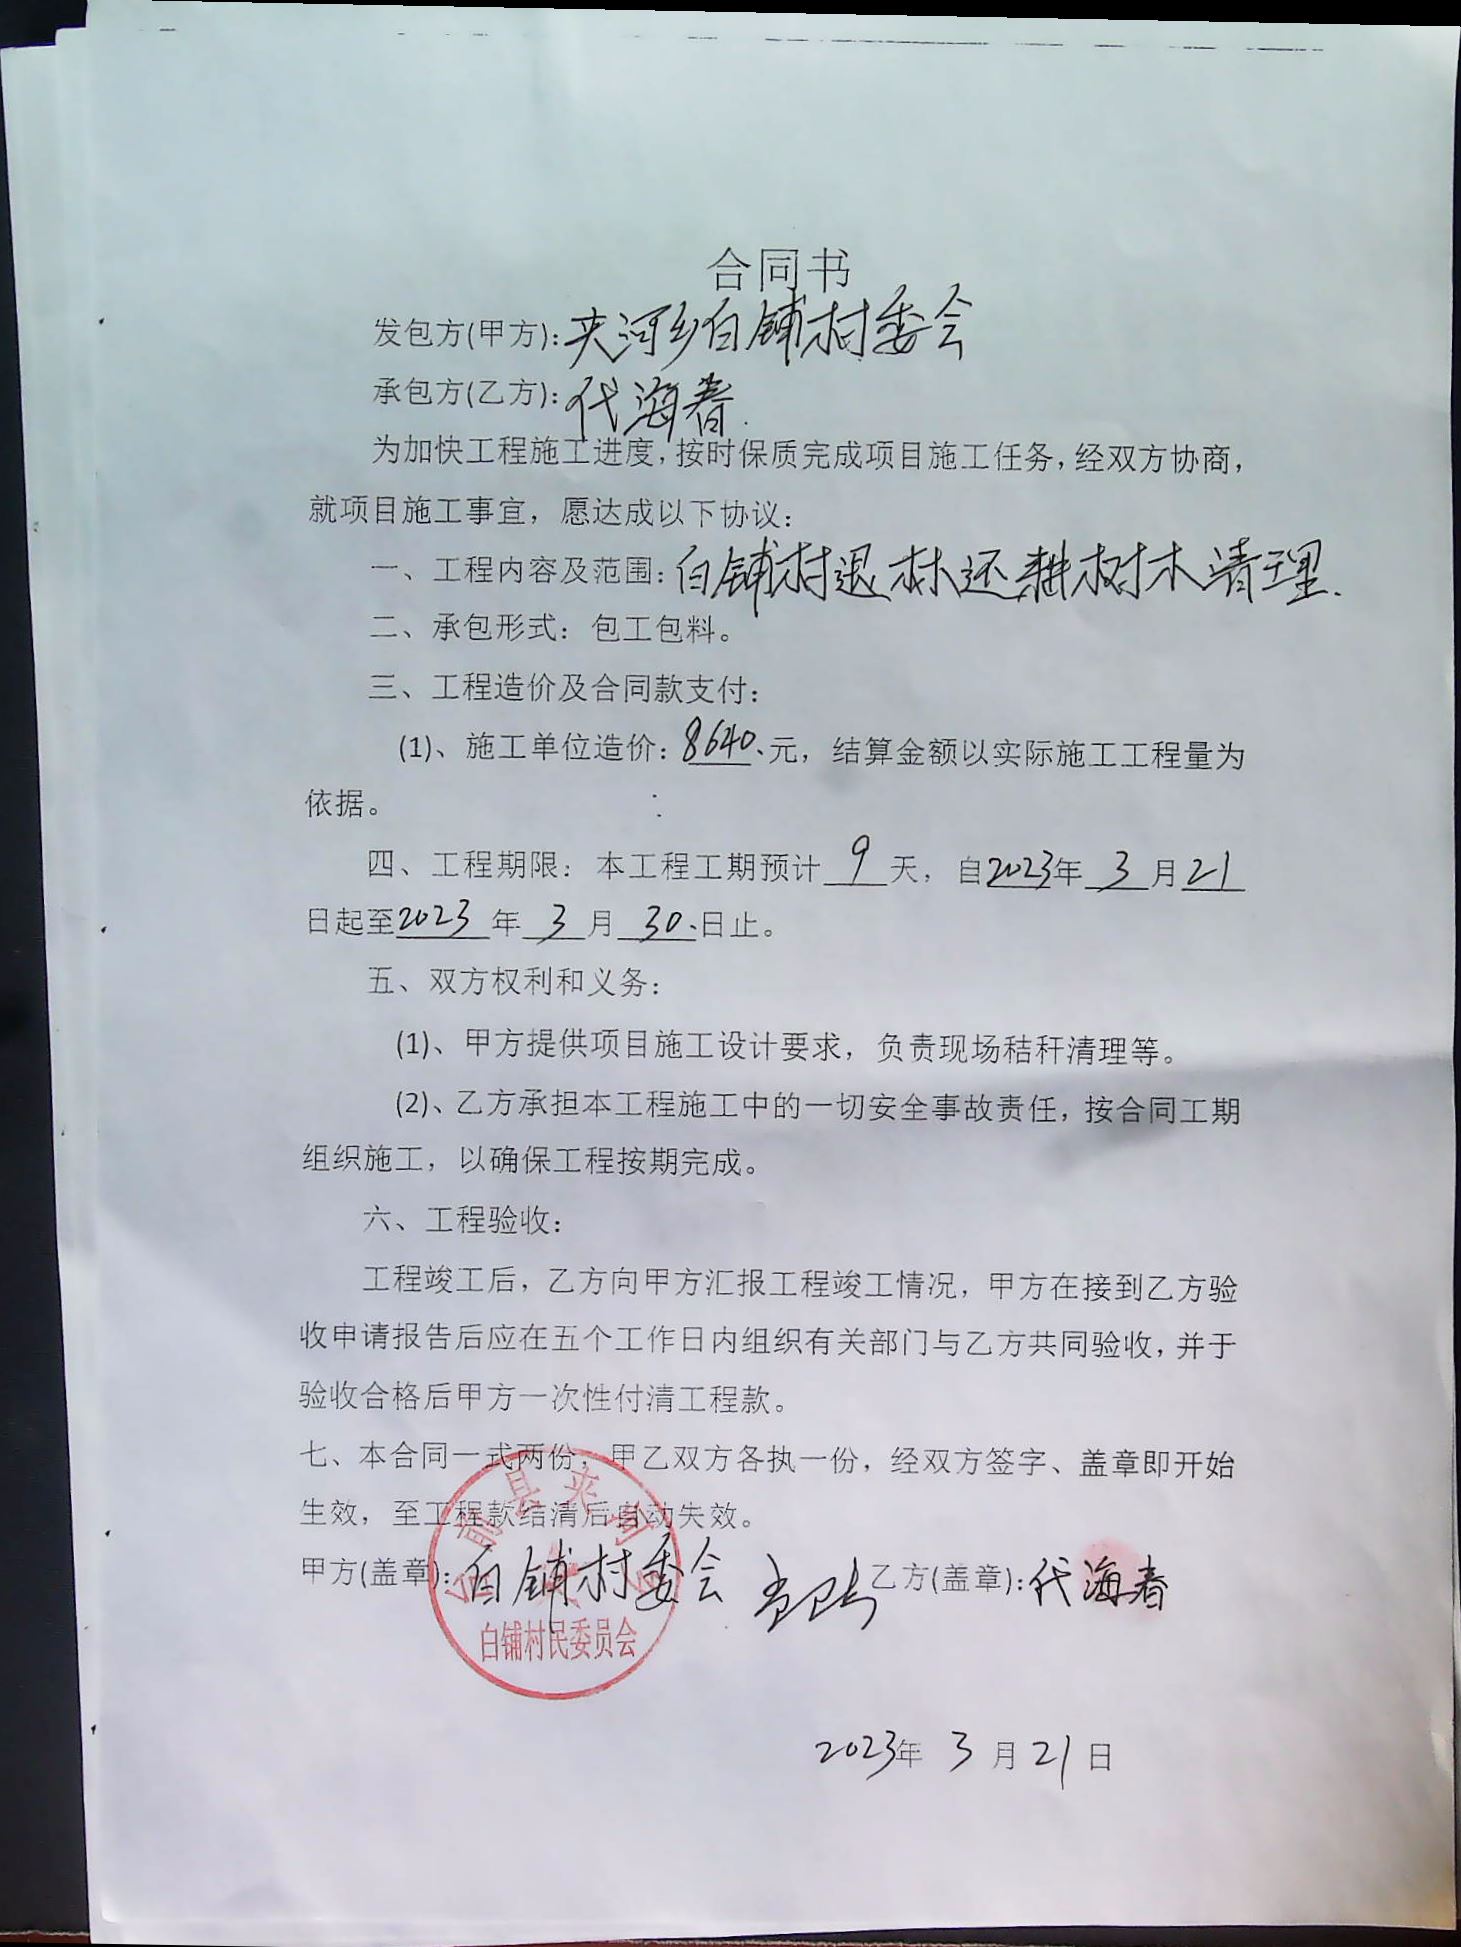 合同书
发包方(甲方):夹河乡白铺村委会
承包方(乙方):代海春.
为加快工程施工进度,按时保质完成项目施工任务,经双方协商,
就项目施工事宜，愿达成以下协议:
一、工程内容及范围:白铺村退林还耕树木清理.
二、承包形式：包工包料。
三、工程造价及合同款支付:
(1)、施工单位造价:8640、元，结算金额以实际施工工程量为
依据。
四、工程期限：本工程工期预计9天，自2023年3月21
日起至2023年3月30、日止。
五、双方权利和义务:
(1)、甲方提供项目施工设计要求，负责现场秸秆清理等。
(2)、乙方承担本工程施工中的一切安全事故责任，按合同工期
组织施工，以确保工程按期完成。
六、工程验收:
工程竣工后，乙方向甲方汇报工程竣工情况，甲方在接到乙方验
收申请报告后应在五个工作日内组织有关部门与乙方共同验收,并于
验收合格后甲方一次性付清工程款。
七、本合同一式两份，甲乙双方各执一份，经双方签字、盖章即开始
生效，至工程款结清后自动失效。
甲方(盖章):白铺村委会 乙方(盖章):代海春
县夹河
白铺村民委员会
2023年3月21日